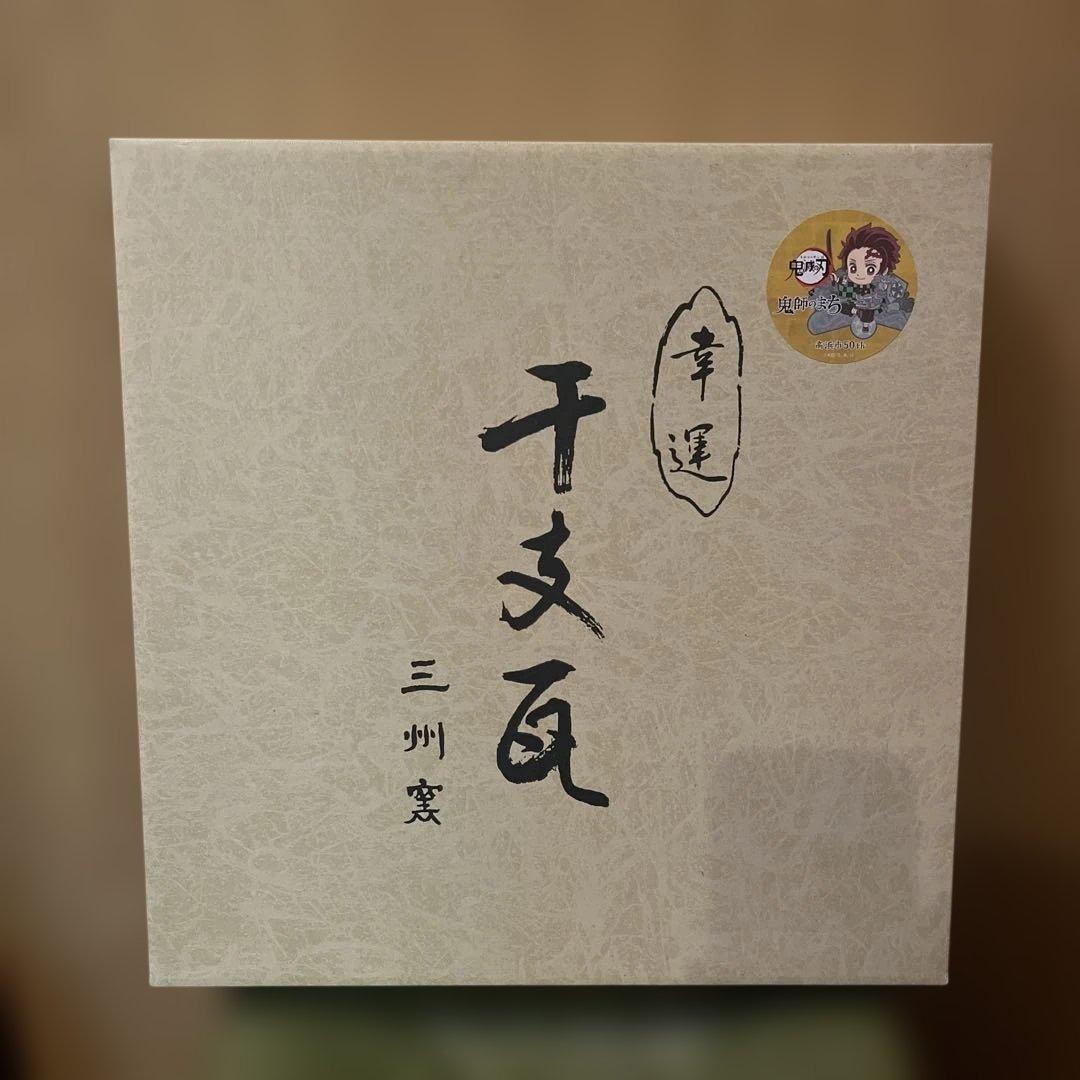 幸運
干支瓦
三州窯
鬼滅の刃
鬼師のまち
高浜市50th